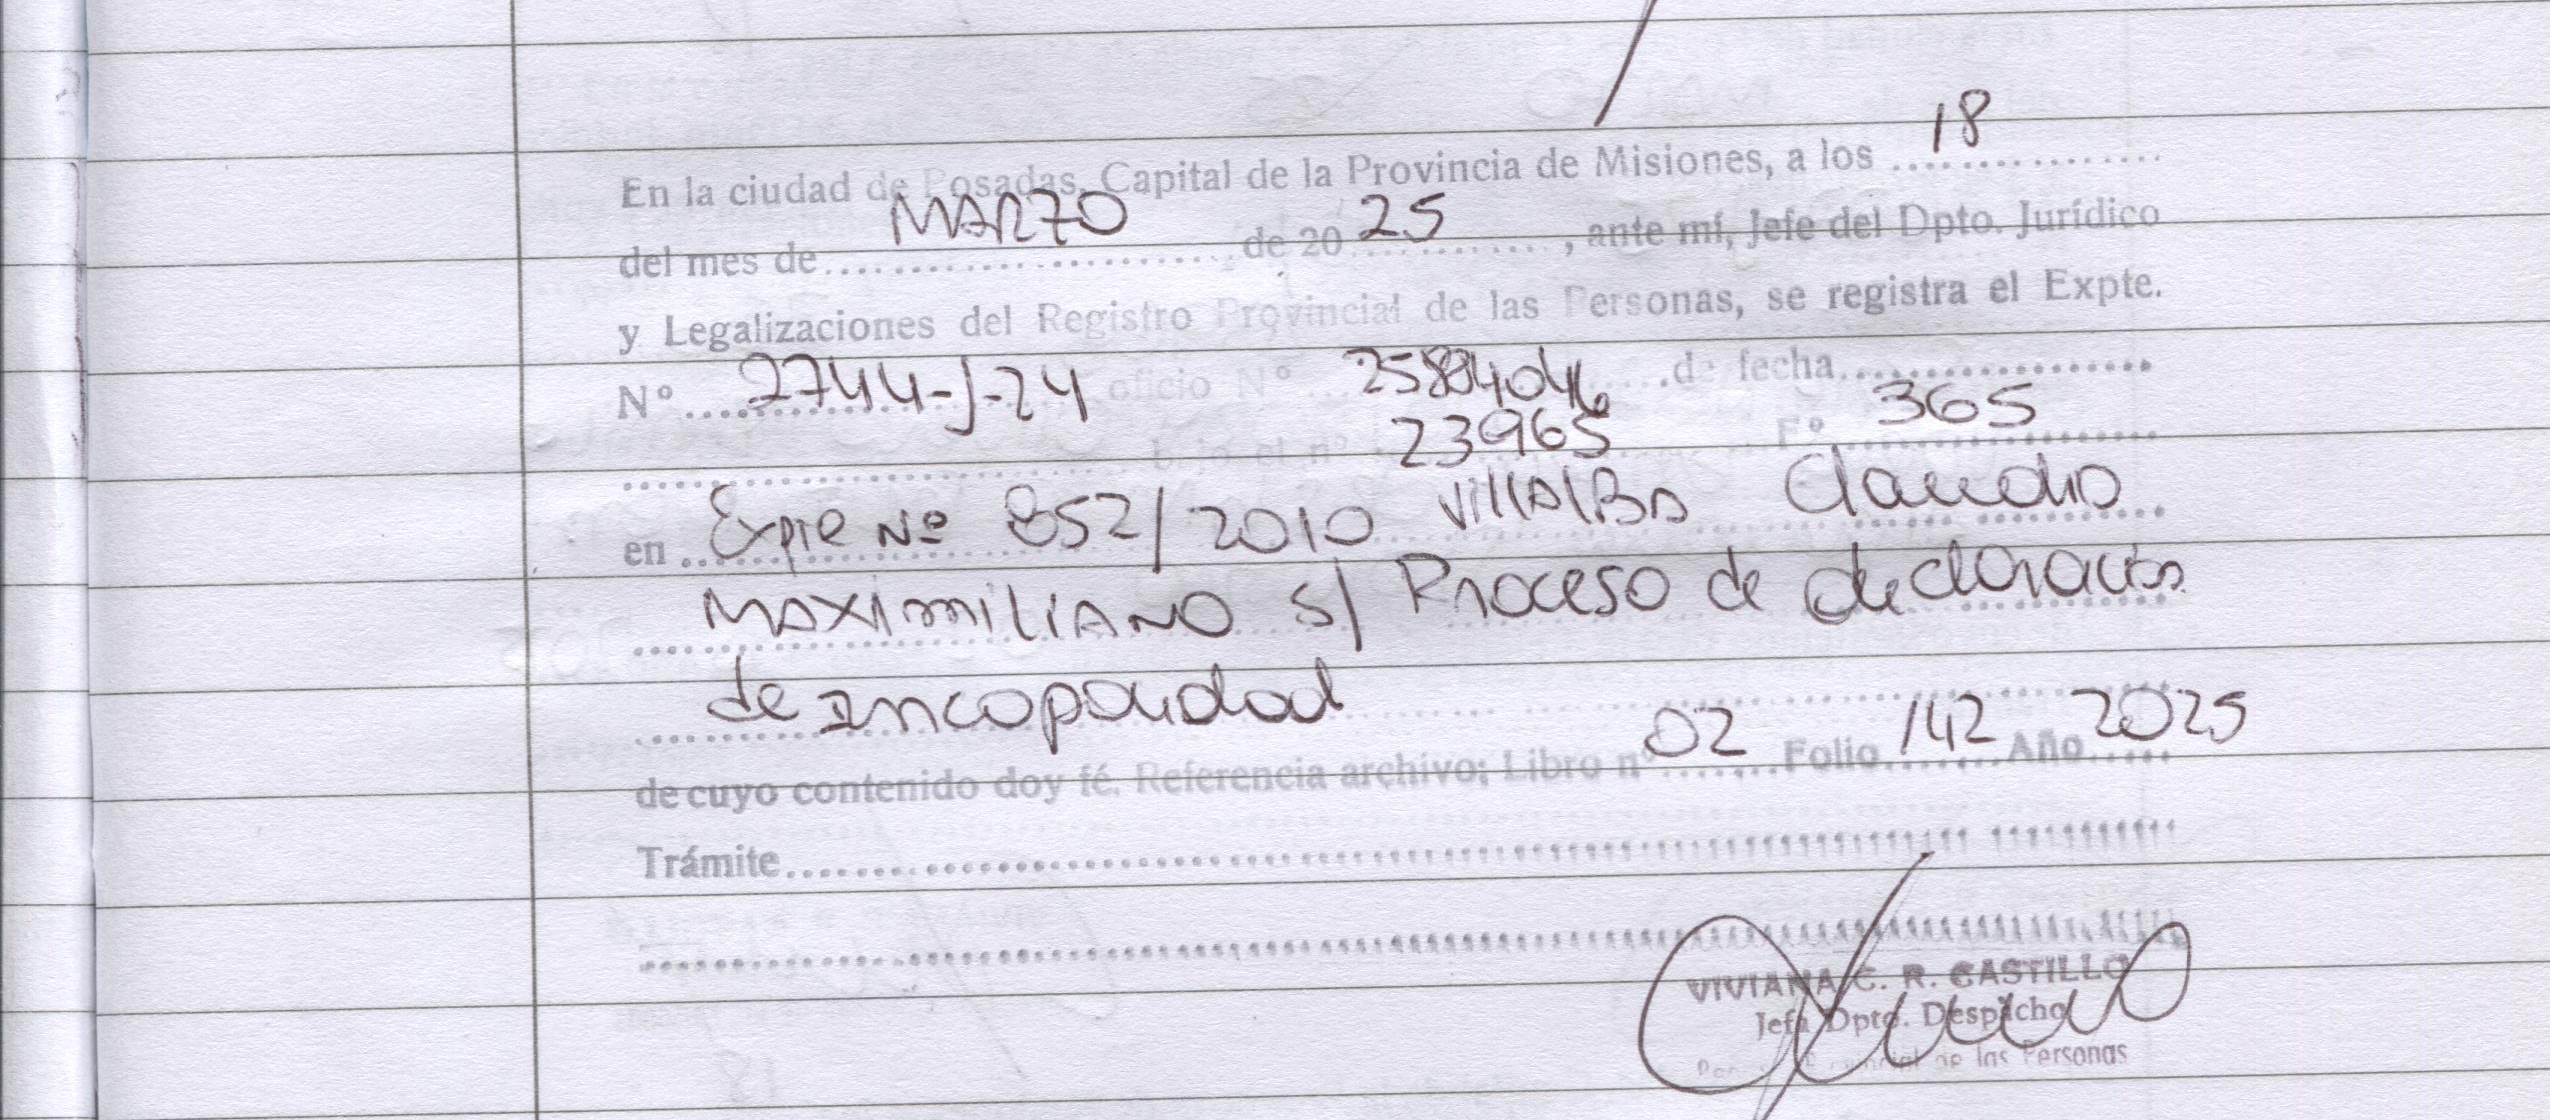 18
En la ciudad de Posadas, Capital de la Provincia de Misiones, a los
MARZO 25
del mes de de 20 , ante mí, Jefe del Dpto. Jurídico
y Legalizaciones del Registro Provincial de las Personas, se registra el Expte.
Nº 2744-J-24 oficio Nº de fecha
bajo el nº 23965 Fº 365
en Expte Nº 852/2010 Villalba Claudio
Maximiliano s/ Proceso de declaración
de Incapacidad
de cuyo contenido doy fé. Referencia archivo; Libro nº 02 Folio 142 Año 2025
Trámite
VIVIANA C. R. CASTILLO
Jefa Dpto. Despacho
de las Personas